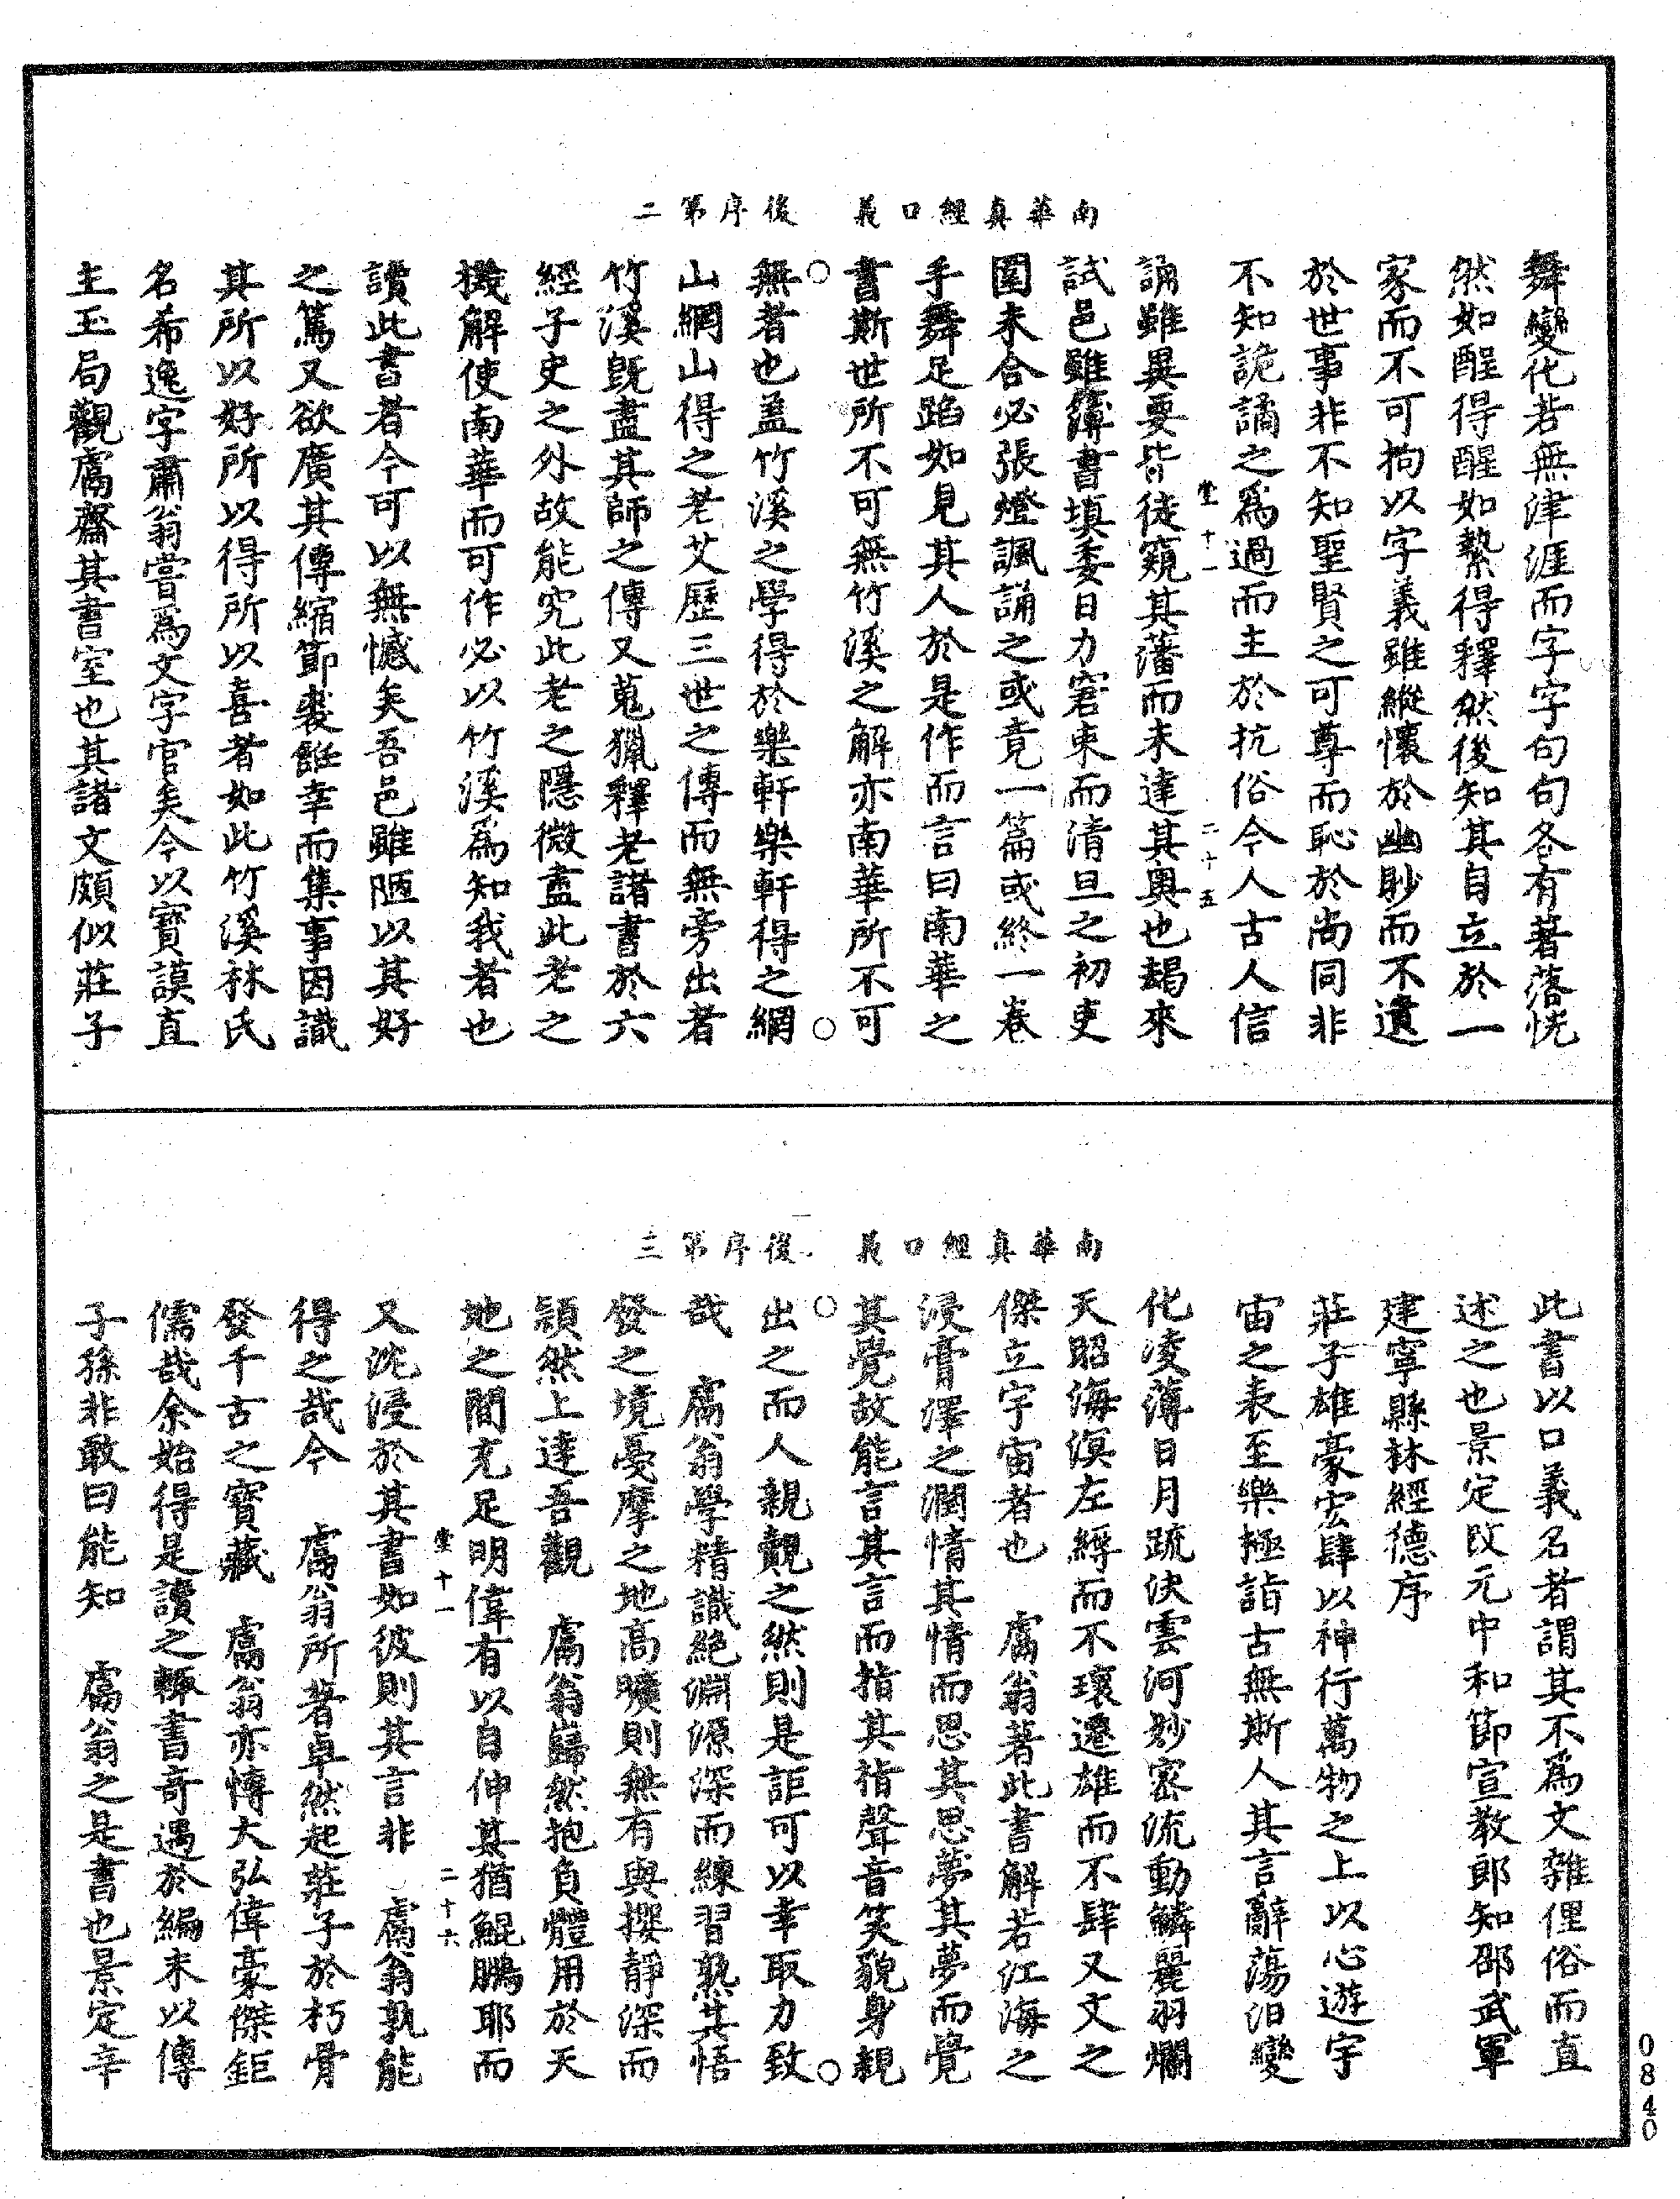 南華真經口義　後序第二
舞變化若無津涯而字字句句各有著落恍
然如酲得醒如縶得釋然後知其自立於一
家而不可拘以字義雖縱懷於幽眇而不遺
於世事非不知聖賢之可尊而恥於尚同非
不知詭譎之爲過而主於抗俗今人古人信
堂十一　二十五
誦雖異要皆徒窺其藩而未達其奧也朅來
試邑雖簿書填委日力窘束而清旦之初吏
圍未合必張燈諷誦之或竟一篇或終一卷
手舞足蹈如見其人於是作而言曰南華之
書斯世所不可無竹溪之解亦南華所不可
無者也蓋竹溪之學得於樂軒樂軒得之網
山網山得之老艾歷三世之傳而無旁出者
竹溪既盡其師之傳又蒐獵釋老諸書於六
經子史之外故能究此老之隱微盡此老之
機解使南華而可作必以竹溪爲知我者也
讀此書者今可以無憾矣吾邑雖陋以其好
之篤又欲廣其傳縮節裘餁幸而集事因識
其所以好所以得所以喜者如此竹溪林氏
名希逸字肅翁嘗爲文字官矣今以寶謨直
主玉局觀鬳齋其書室也其諸文頗似莊子
南華真經口義　後序第三
此書以口義名者謂其不爲文雜俚俗而直
述之也景定改元中和節宣教郎知邵武軍
建寧縣林經德序
莊子雄豪宏肆以神行萬物之上以心遊宇
宙之表至樂極詣古無斯人其言辭蕩汩變
化凌薄日月疏決雲河妙密流動鱗麗羽爛
天昭海溟左縛而不瓌遷雄而不肆又文之
傑立宇宙者也　鬳翁著此書解若江海之
浸膏澤之潤情其情而思其思夢其夢而覺
其覺故能言其言而指其指聲音笑貌身親
出之而人親覿之然則是詎可以幸取力致
哉　鬳翁學精識絶淵源深而練習熟其悟
發之境憂摩之地高曠則無有與撰靜深而
穎然上達吾觀　鬳翁歸然抱負體用於天
地之間充足明偉有以自伸其猶鯤鵬耶而
堂十一　二十六
又沈浸於其書如彼則其言非　鬳翁孰能
得之哉今　鬳翁所著卓然起莊子於朽骨
發千古之寶藏　鬳翁亦博大弘偉豪傑鉅
儒哉余始得是讀之輙書奇遇於編末以傳
子孫非敢曰能知　鬳翁之是書也景定辛
0840